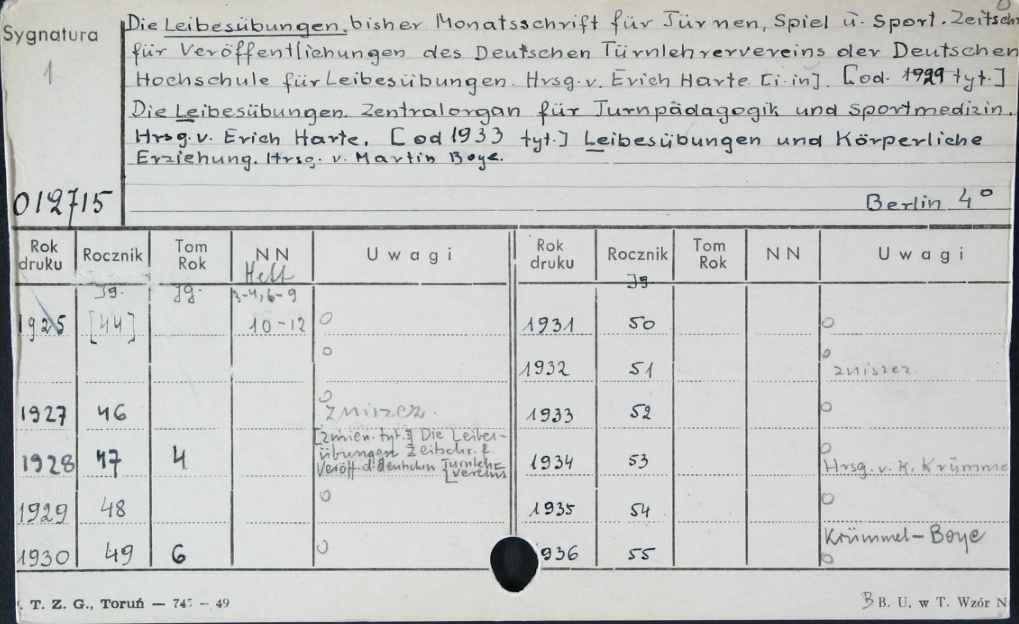 Sygnatura
1
012715
Die Leibesübungen, bisher Monatsschrift für Turnen, Spiel u. Sport. Zeitsch
für Veröffentlichungen des Deutschen Turnlehrervereins der Deutschen
Hochschule für Leibesübungen. Hrsg. v. Erich Harte [i in]. [od. 1929 tyt.]
Die Leibesübungen. Zentralorgan für Turnpädagogik und Sportmedizin.
Hrsg. v. Erich Harte. [od 1933 tyt.] Leibesübungen und Körperliche
Erziehung. Hrsg. v. Martin Boye.
Berlin 4°
Rok druku Rocznik Tom Rok NN Uwagi Rok druku Rocznik Tom Rok NN Uwagi
Jg. Jg. Heft Jg
3-4, 6-9
1925 [44] 10-12 1931 50
1932 51 zniszcz.
1927 46 zniszcz. 1933 52
1928 47 4 [zmien. tyt.] Die Leibes-
übungen Zeitschr. f.
Veröff. d. deutschen Turnlehr-
vereins
1934 53 Hrsg. v. K. Krümme
1929 48 1935 54
1930 49 6 936 55 Krümmel-Boye
T. Z. G., Toruń — 745 — 49
B B. U. w T. Wzór N